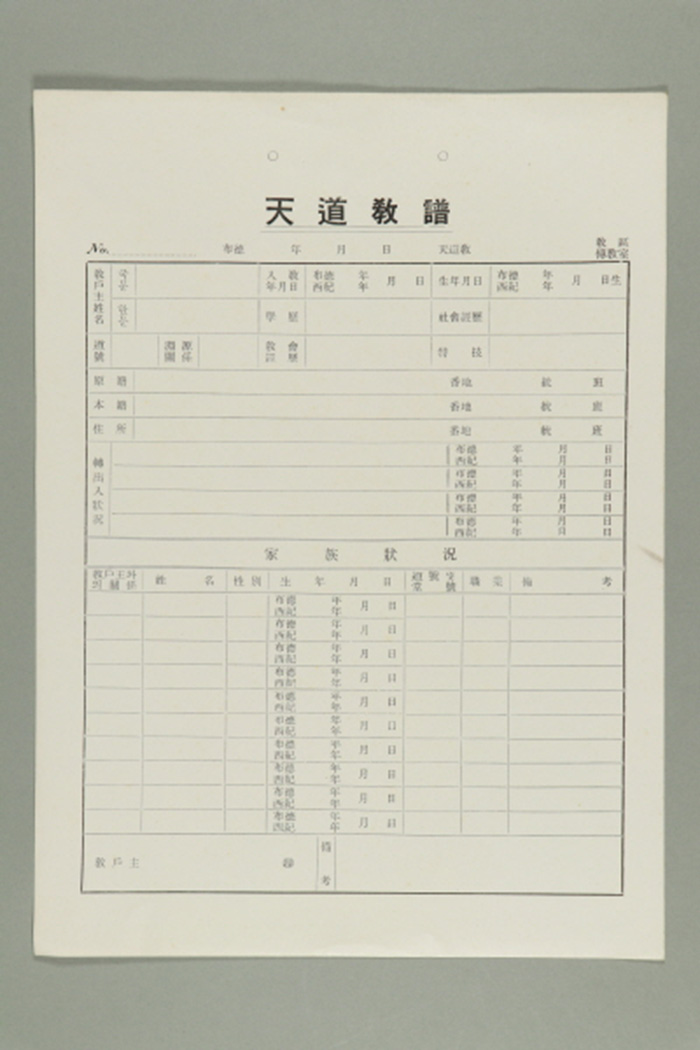 天道敎譜
No. 布德 年 月 日 天道敎 敎區
傳敎室
敎戶主姓名 국문 入敎年月日 布德 年 月 日 生年月日 布德 年 月 日生
西紀 年 西紀 年
한문 學歷 社會經歷
道號 淵源關係 敎會 歷 特技
原籍 番地 統 班
本籍 番地 統 班
住所 番地 統 班
轉出入狀況 布德 年 月 日
西紀 年 月 日
布德 年 月 日
西紀 年 月 日
布德 年 月 日
西紀 年 月 日
布德 年 月 日
西紀 年 月 日
家族狀況
敎戶主와의關係 姓名 性別 生年月日 道號 堂號 職業 備考
布德 年 月 日
西紀 年
布德 年 月 日
西紀 年
布德 年 月 日
西紀 年
布德 年 月 日
西紀 年
布德 年 月 日
西紀 年
布德 年 月 日
西紀 年
布德 年 月 日
西紀 年
布德 年 月 日
西紀 年
布德 年 月 日
西紀 年
布德 年 月 日
西紀 年
敎戶主 ㊞ 備考